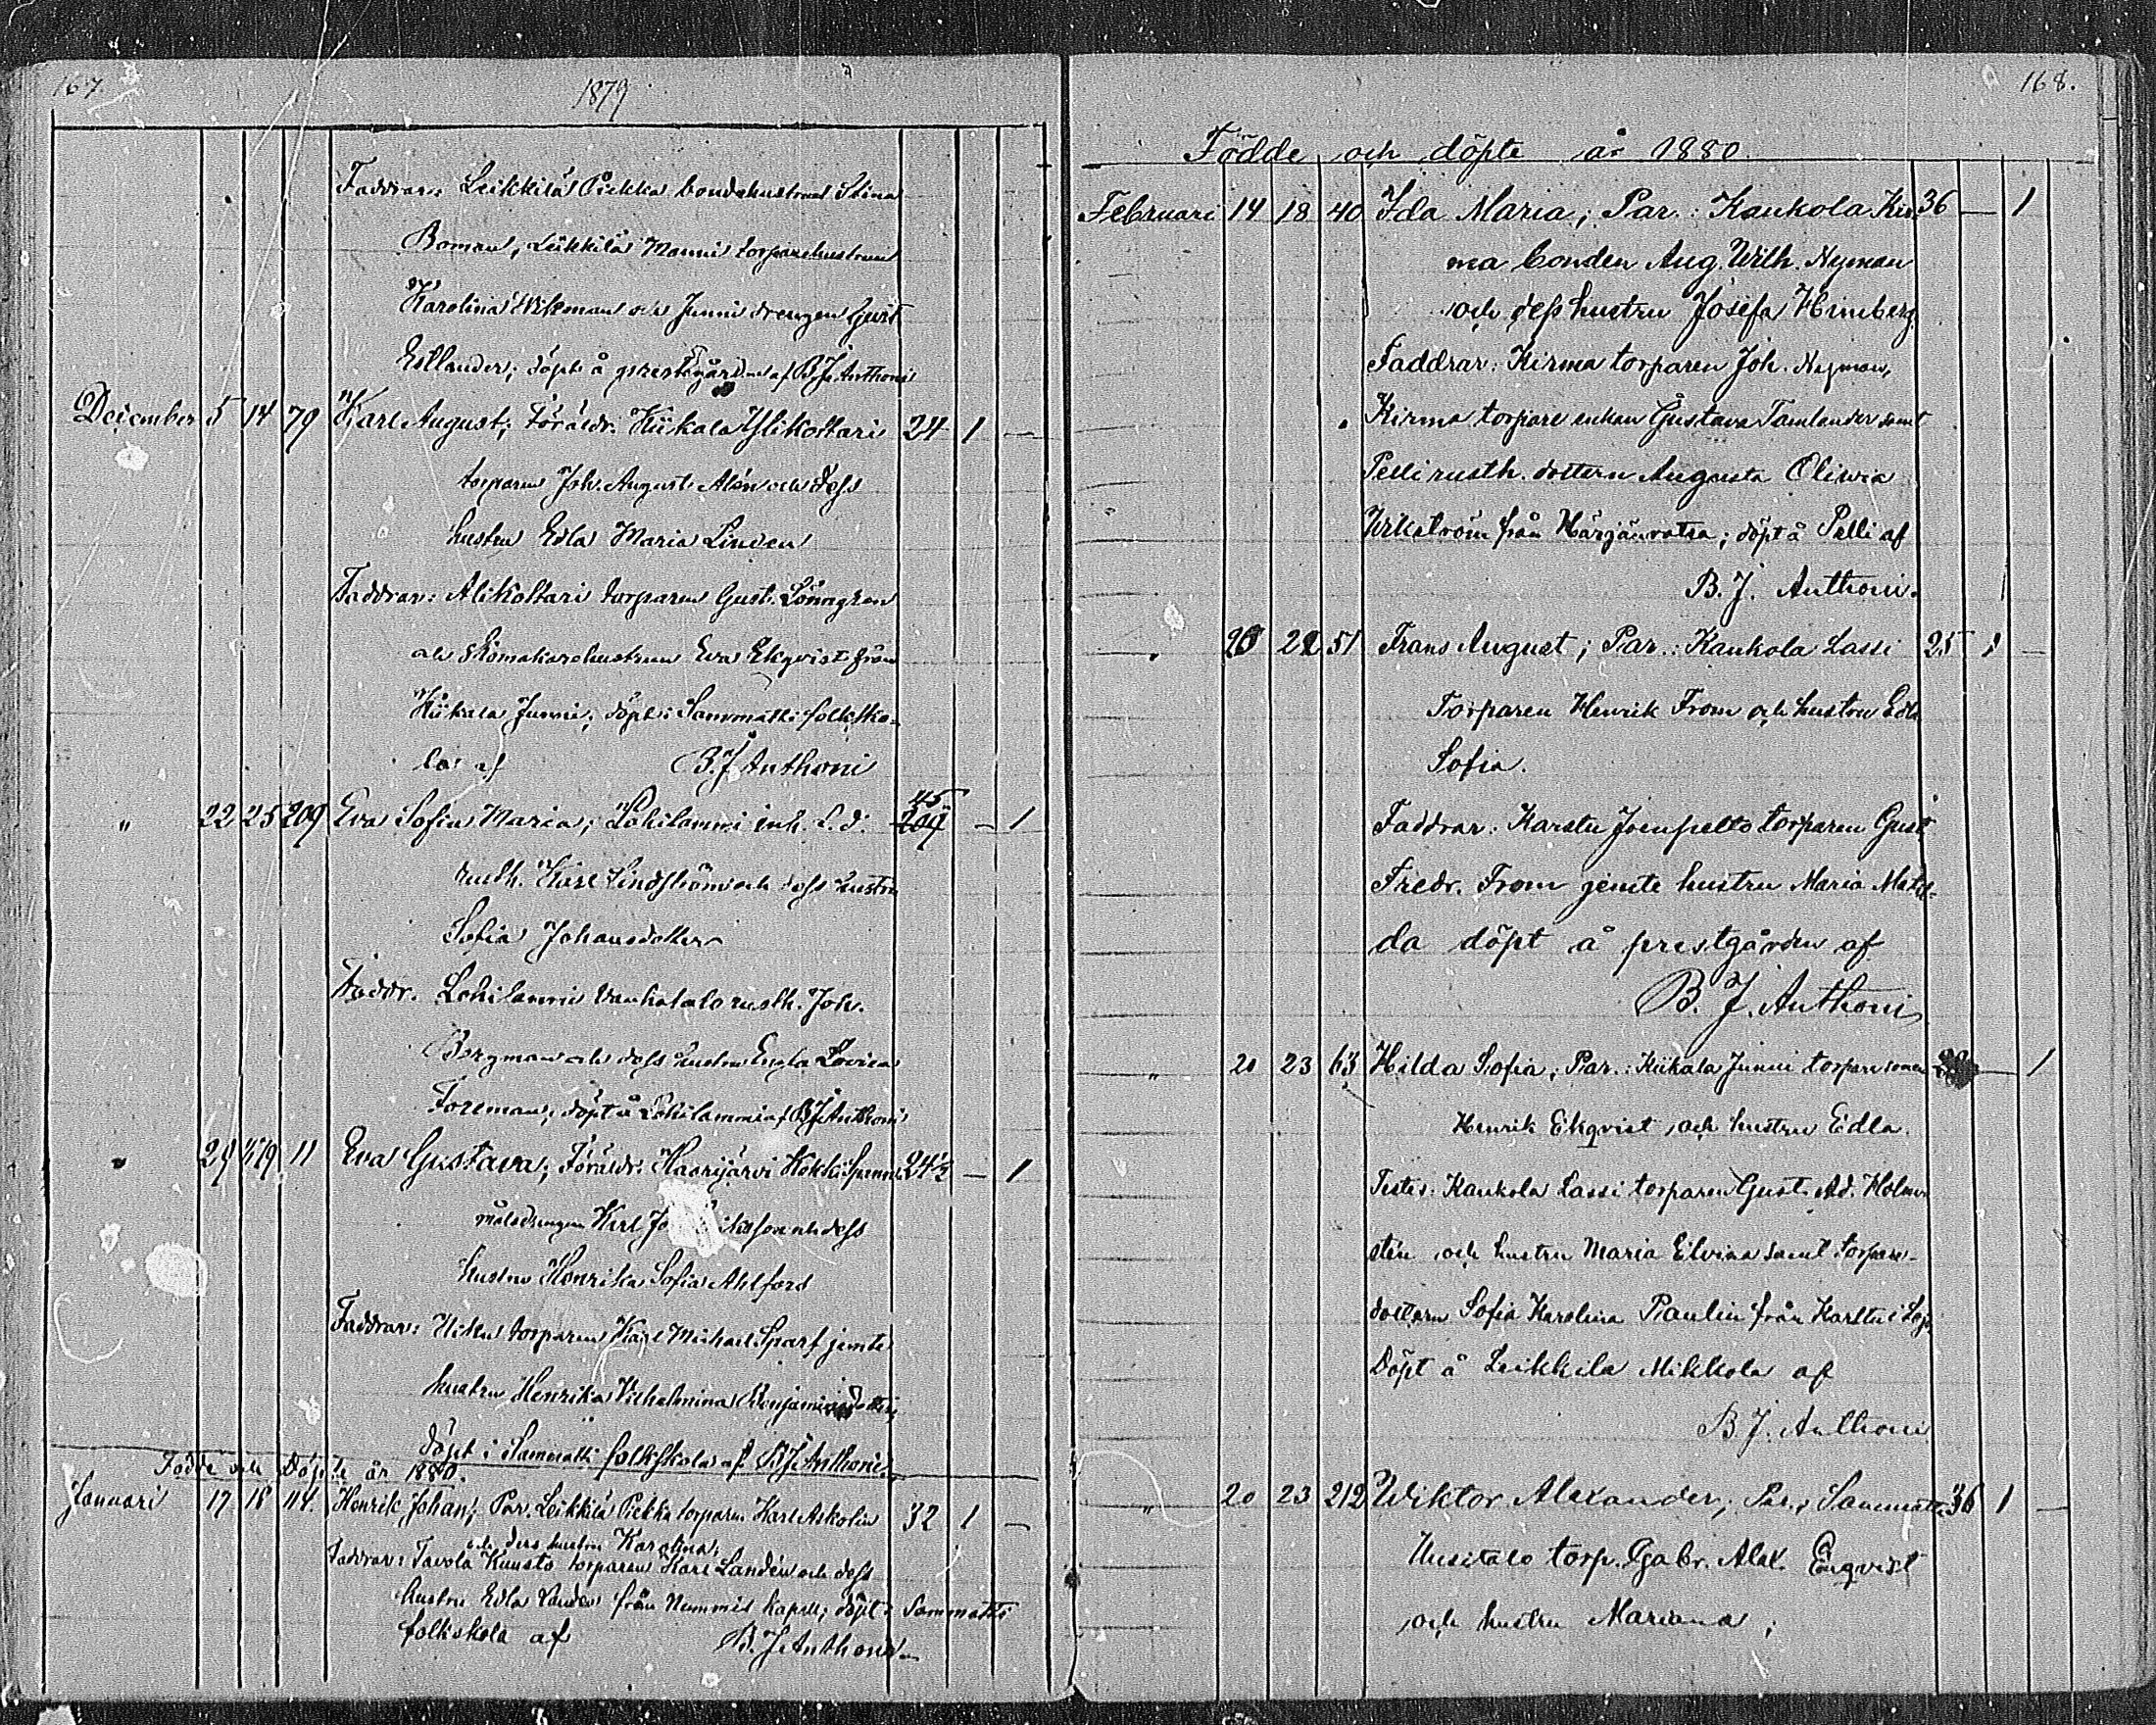 167.
1879
Faddrar: Leikkilä Pickka bondehustrun Stina
Boman, Leikkilä Manni torparehustrun
Karolina Wikman och Junni drengen Gust.
Edlander; döpt å prestgården af B.J. Anthoni
December 5 14 79 Karl August; Föräldr. Kiikala Ylikottari 24 1 —
torparen Joh. August Alén och dess
hustru Edla Maria Linden
Faddrar: Alikottari torparen Gust. Lönngren
och skomakarehustrun Eva Ekqvist från
Kiikala Junni; döpt i Sammatti folksko-
la af B.J. Anthoni
" 22 25 209 Eva Sofia Maria; Lohilammi inh. L. d. 45 209 — 1
rusth. Karl Lindström och dess hustru
Sofia Johansdotter
Faddr. Lohilammi Vanhatalo rusth. Joh.
Bergman och dess hustru Engla Lovisa
Foreman; döpt å Lohilammi af B.J. Anthoni
" 29 4/19 11 Eva Gustava; Föräldr. Haarijärvi Kokki Spann- 24½ — 1
målsdrengen Karl och dess
hustru Henrika Sofia Ahlfors
Faddrar: torparen Karl Michael Sparf jemte
hustru Henrika Vilhelmina Benjaminsdotter;
döpt i Sammatti folkskola af B.J. Anthoni
Födde och Döpte år 1880.
Januari 17 18 114. Henrik Johan; Par. Leikkilä Pickka torparen Karl Askolin 32 1 —
och dess hustru Karolina;
Faddrar: Tavola Kuusto torparen Karl Landén och dess
hustru Edla Landén från Nummis kapell; döpt i Sammatti
folkskola af B.J. Anthoni
168.
Födde och döpte år 1880
Februari 14 18 40 Ida Maria; Par.: Kaukola Kir- 36 — 1
ma bonden Aug. Wilh. Nyman
och dess hustru Josefa Himberg
Faddrar: Kirma torparen Joh. Nyman,
Kirma torpare enkan Gustava Tamlander samt
Pelli rusth. dottern Augusta Oliwia
Wikström från Härjänvatsa; döpt å Pelli af
B.J. Anthoni.
" 20 22 51 Frans August; Par.: Kaukola Lassi 25 1 —
Torparen Henrik From och hustru Edla
Sofia.
Faddrar: Karstu Joenpelto torparen Gust.
Fredr. From jemte hustru Maria Matil-
da döpt å prestgården af
B. J. Anthoni
" 20 23 63 Hilda Sofia; Par.: Kiikala Junni torpare sonen — 1
Henrik Ekqvist och hustru Edla.
Testes: Kaukola Lassi torparen Gust. Ad. Holm-
stén och hustru Maria Elvina samt torpare-
dottern Sofia Karolina Paulin från Karstu i Lojo
Döpt å Leikkila Mikkola af
B.J. Anthoni
" 20 23 212 Wiktor Alexander; Par.; Sammatti 36 1 —
Uusitalo torp. Gabr. Alex. Enqvist
och hustru Mariana;